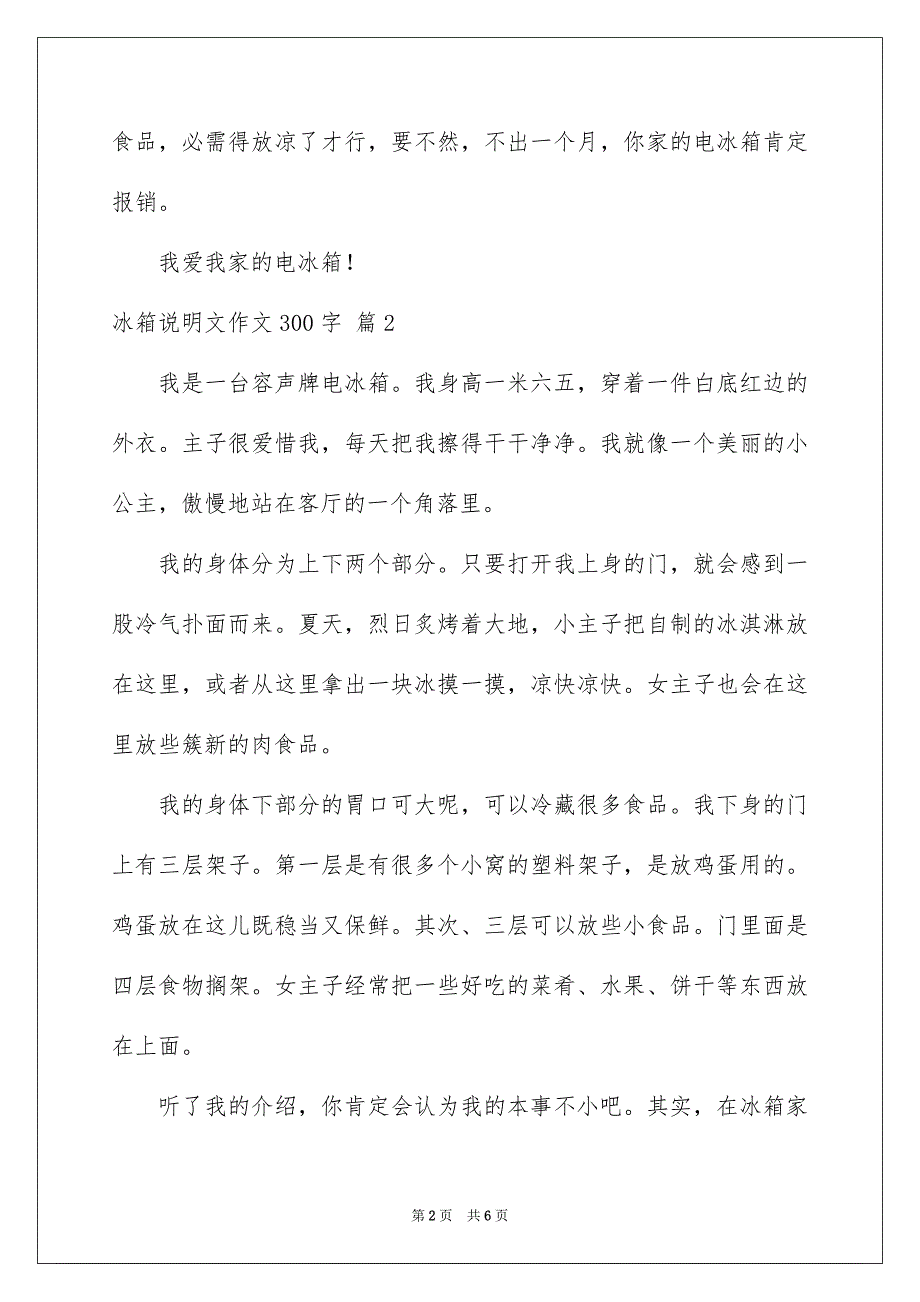 食品，必需得放凉了才行，要不然，不出一个月，你家的电冰箱肯定
报销。
我爱我家的电冰箱！
冰箱说明文作文300字 篇2
我是一台容声牌电冰箱。我身高一米六五，穿着一件白底红边的
外衣。主子很爱惜我，每天把我擦得干干净净。我就像一个美丽的小
公主，傲慢地站在客厅的一个角落里。
我的身体分为上下两个部分。只要打开我上身的门，就会感到一
股冷气扑面而来。夏天，烈日炙烤着大地，小主子把自制的冰淇淋放
在这里，或者从这里拿出一块冰摸一摸，凉快凉快。女主子也会在这
里放些簇新的肉食品。
我的身体下部分的胃口可大呢，可以冷藏很多食品。我下身的门
上有三层架子。第一层是有很多个小窝的塑料架子，是放鸡蛋用的。
鸡蛋放在这儿既稳当又保鲜。其次、三层可以放些小食品。门里面是
四层食物搁架。女主子经常把一些好吃的菜肴、水果、饼干等东西放
在上面。
听了我的介绍，你肯定会认为我的本事不小吧。其实，在冰箱家
第2页 共6页